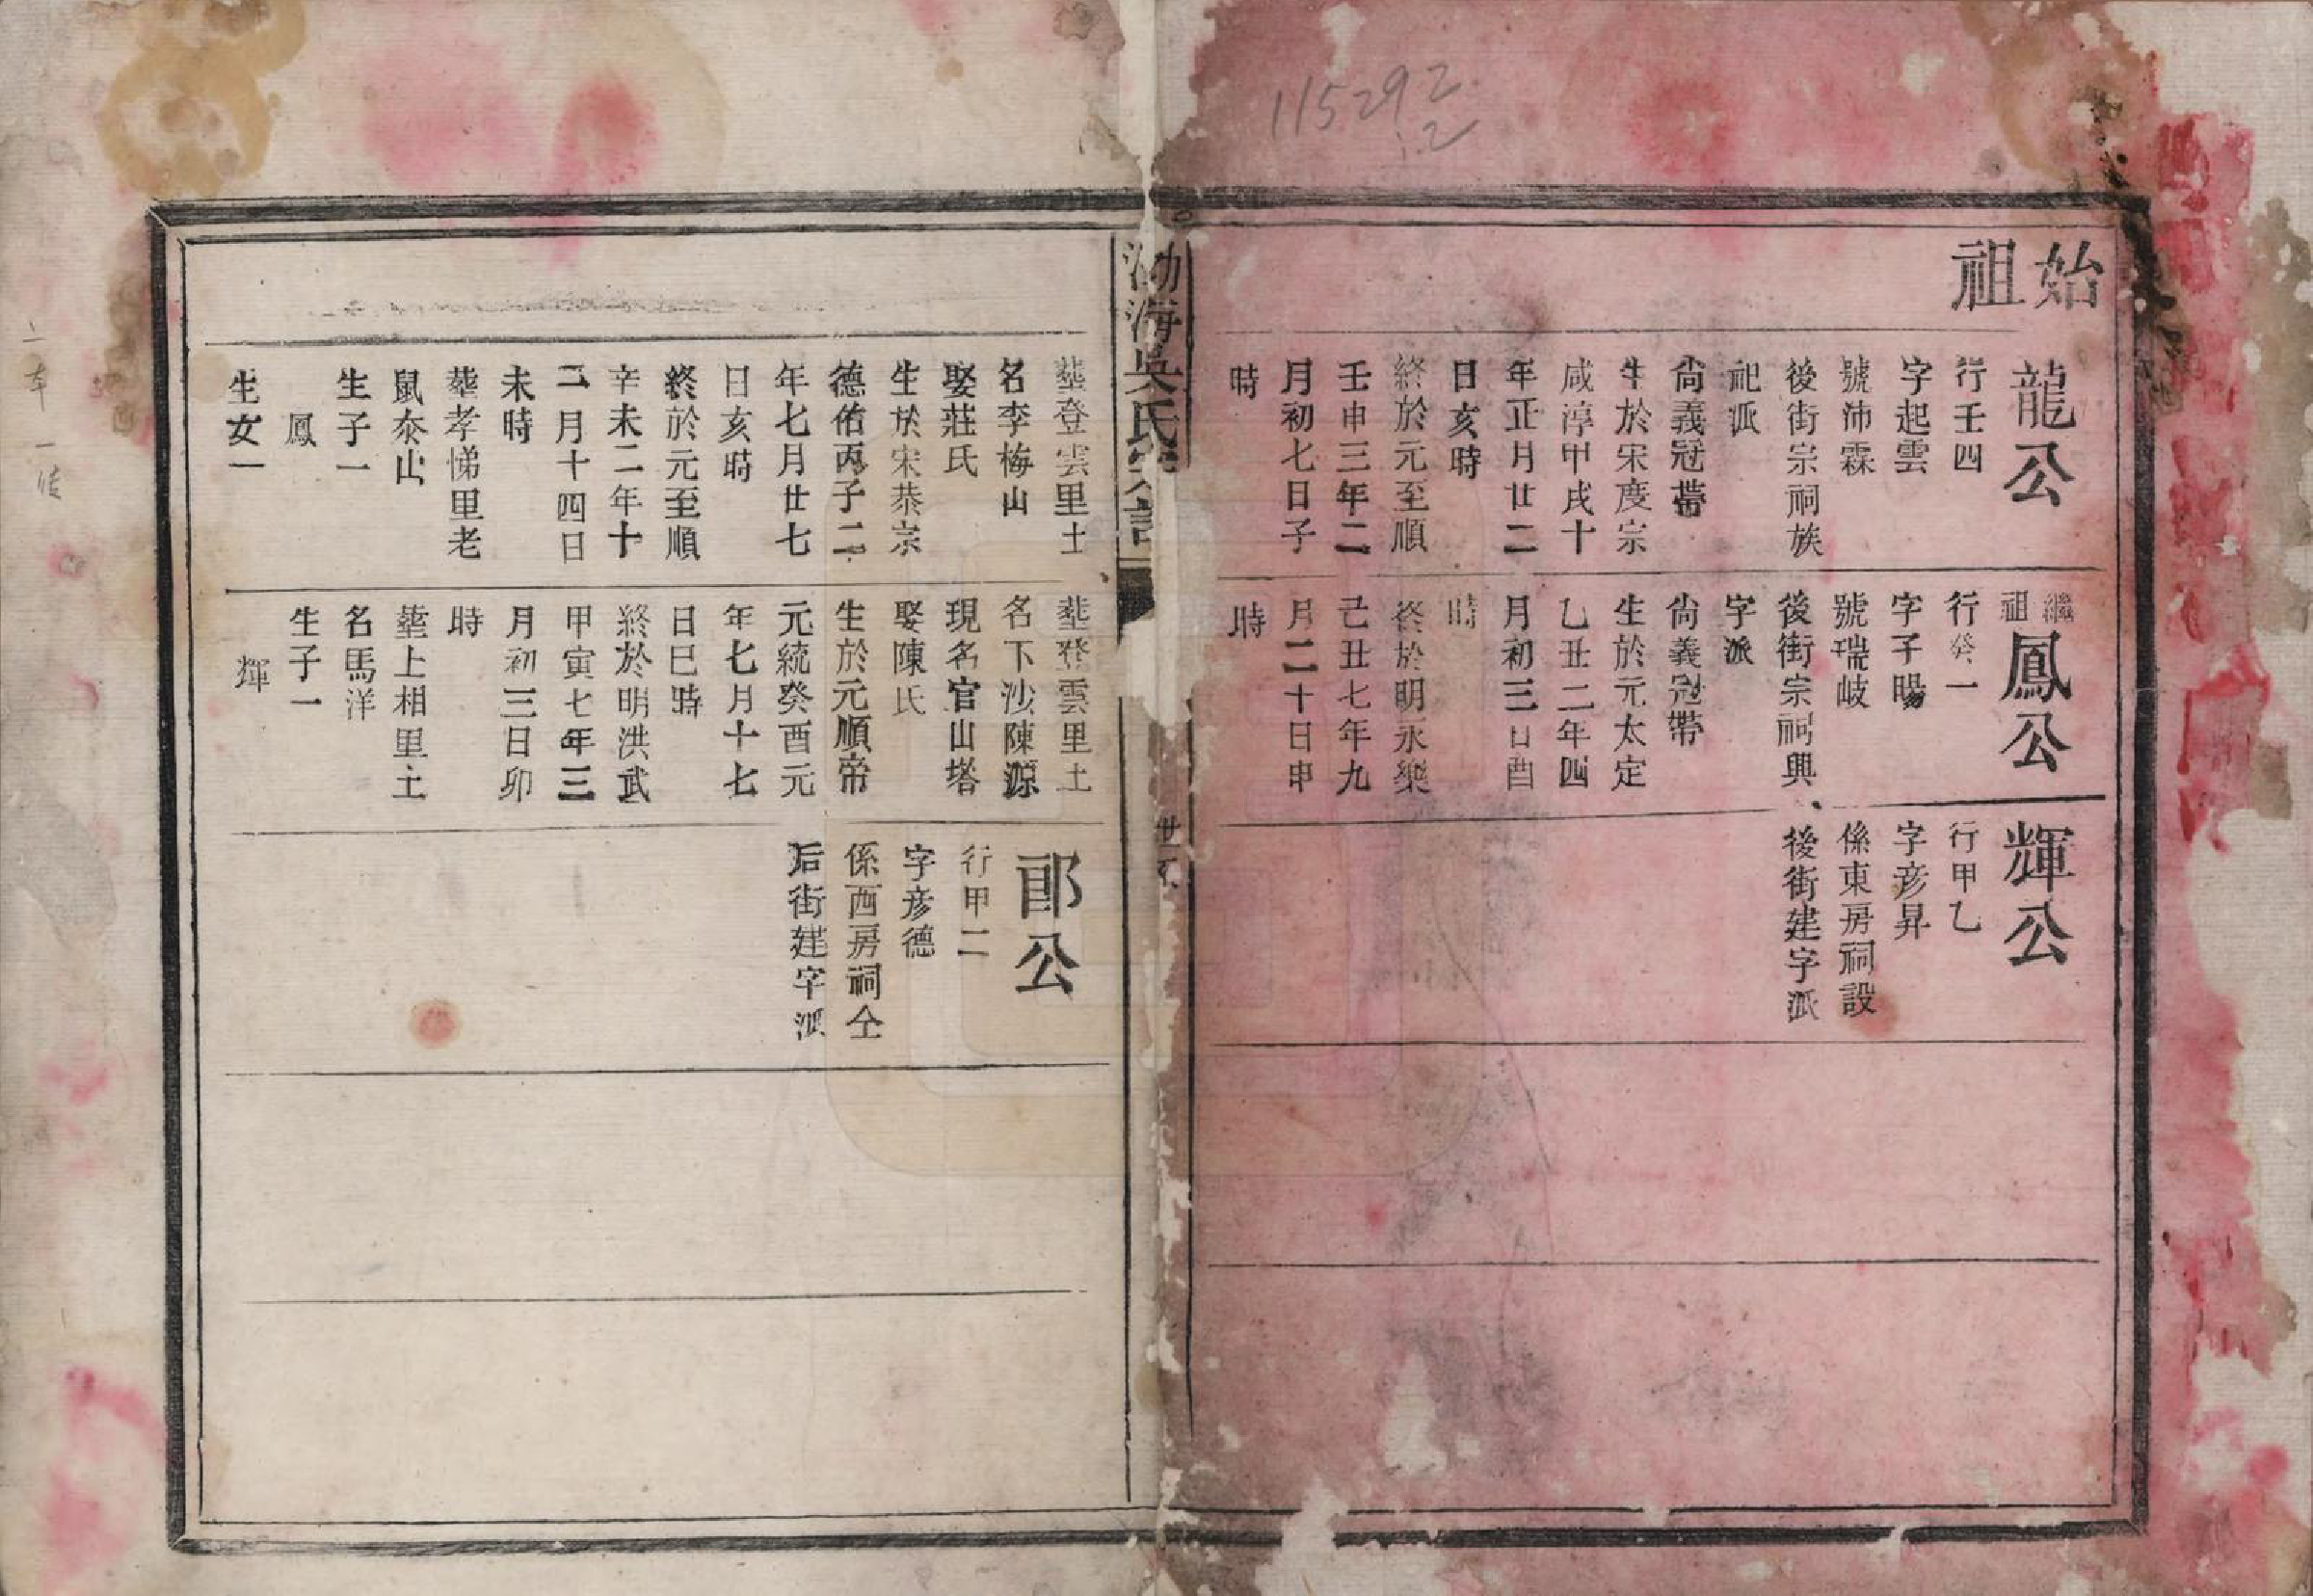 115292
.2
始祖
龍公
行壬四
字起雲
號沛霖
後街宗祠族
祀派
尙義冠帶
生於宋度宗
咸淳甲戌十
年正月廿二
日亥時
終於元至順
壬申三年二
月初七日子
時
繼祖
鳳公
行癸一
字子暘
號瑞岐
後街宗祠興
字派
尙義冠帶
生於元太定
乙丑二年四
月初三日酉
時
終於明永樂
己丑七年九
月二十日申
時
輝公
行甲乙
字彦昇
係東房祠設
後街建字派
渤海吳氏宗譜
世系
塟登雲里土
名李梅山
娶莊氏
生於宋恭宗
德佑丙子二
年七月廿七
日亥時
終於元至順
辛未二年十
二月十四日
未時
塟孝悌里老
鼠泰山
生子一
鳳
生女一
塟登雲里土
名下沙陳源
現名官山塔
娶陳氏
生於元順帝
元統癸酉元
年七月十七
日巳時
終於明洪武
甲寅七年三
月初三日卯
時
塟上相里土
名馬洋
生子一
輝
郎公
行甲二
字彦德
係西房祠仝
后街建字派